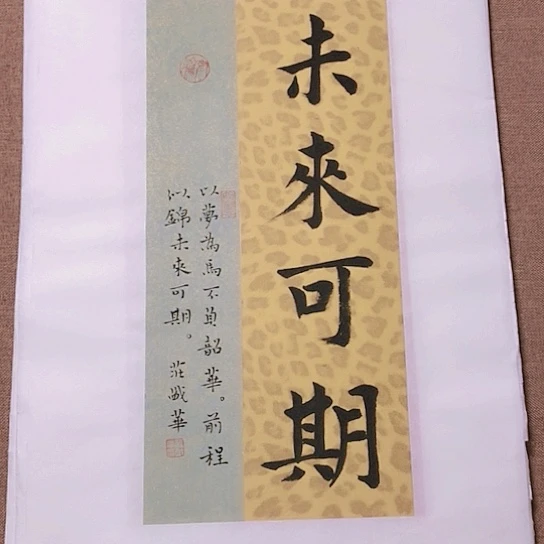 未來可期
以夢為馬不負韶華。前程
以錦未來可期。 莊戰華